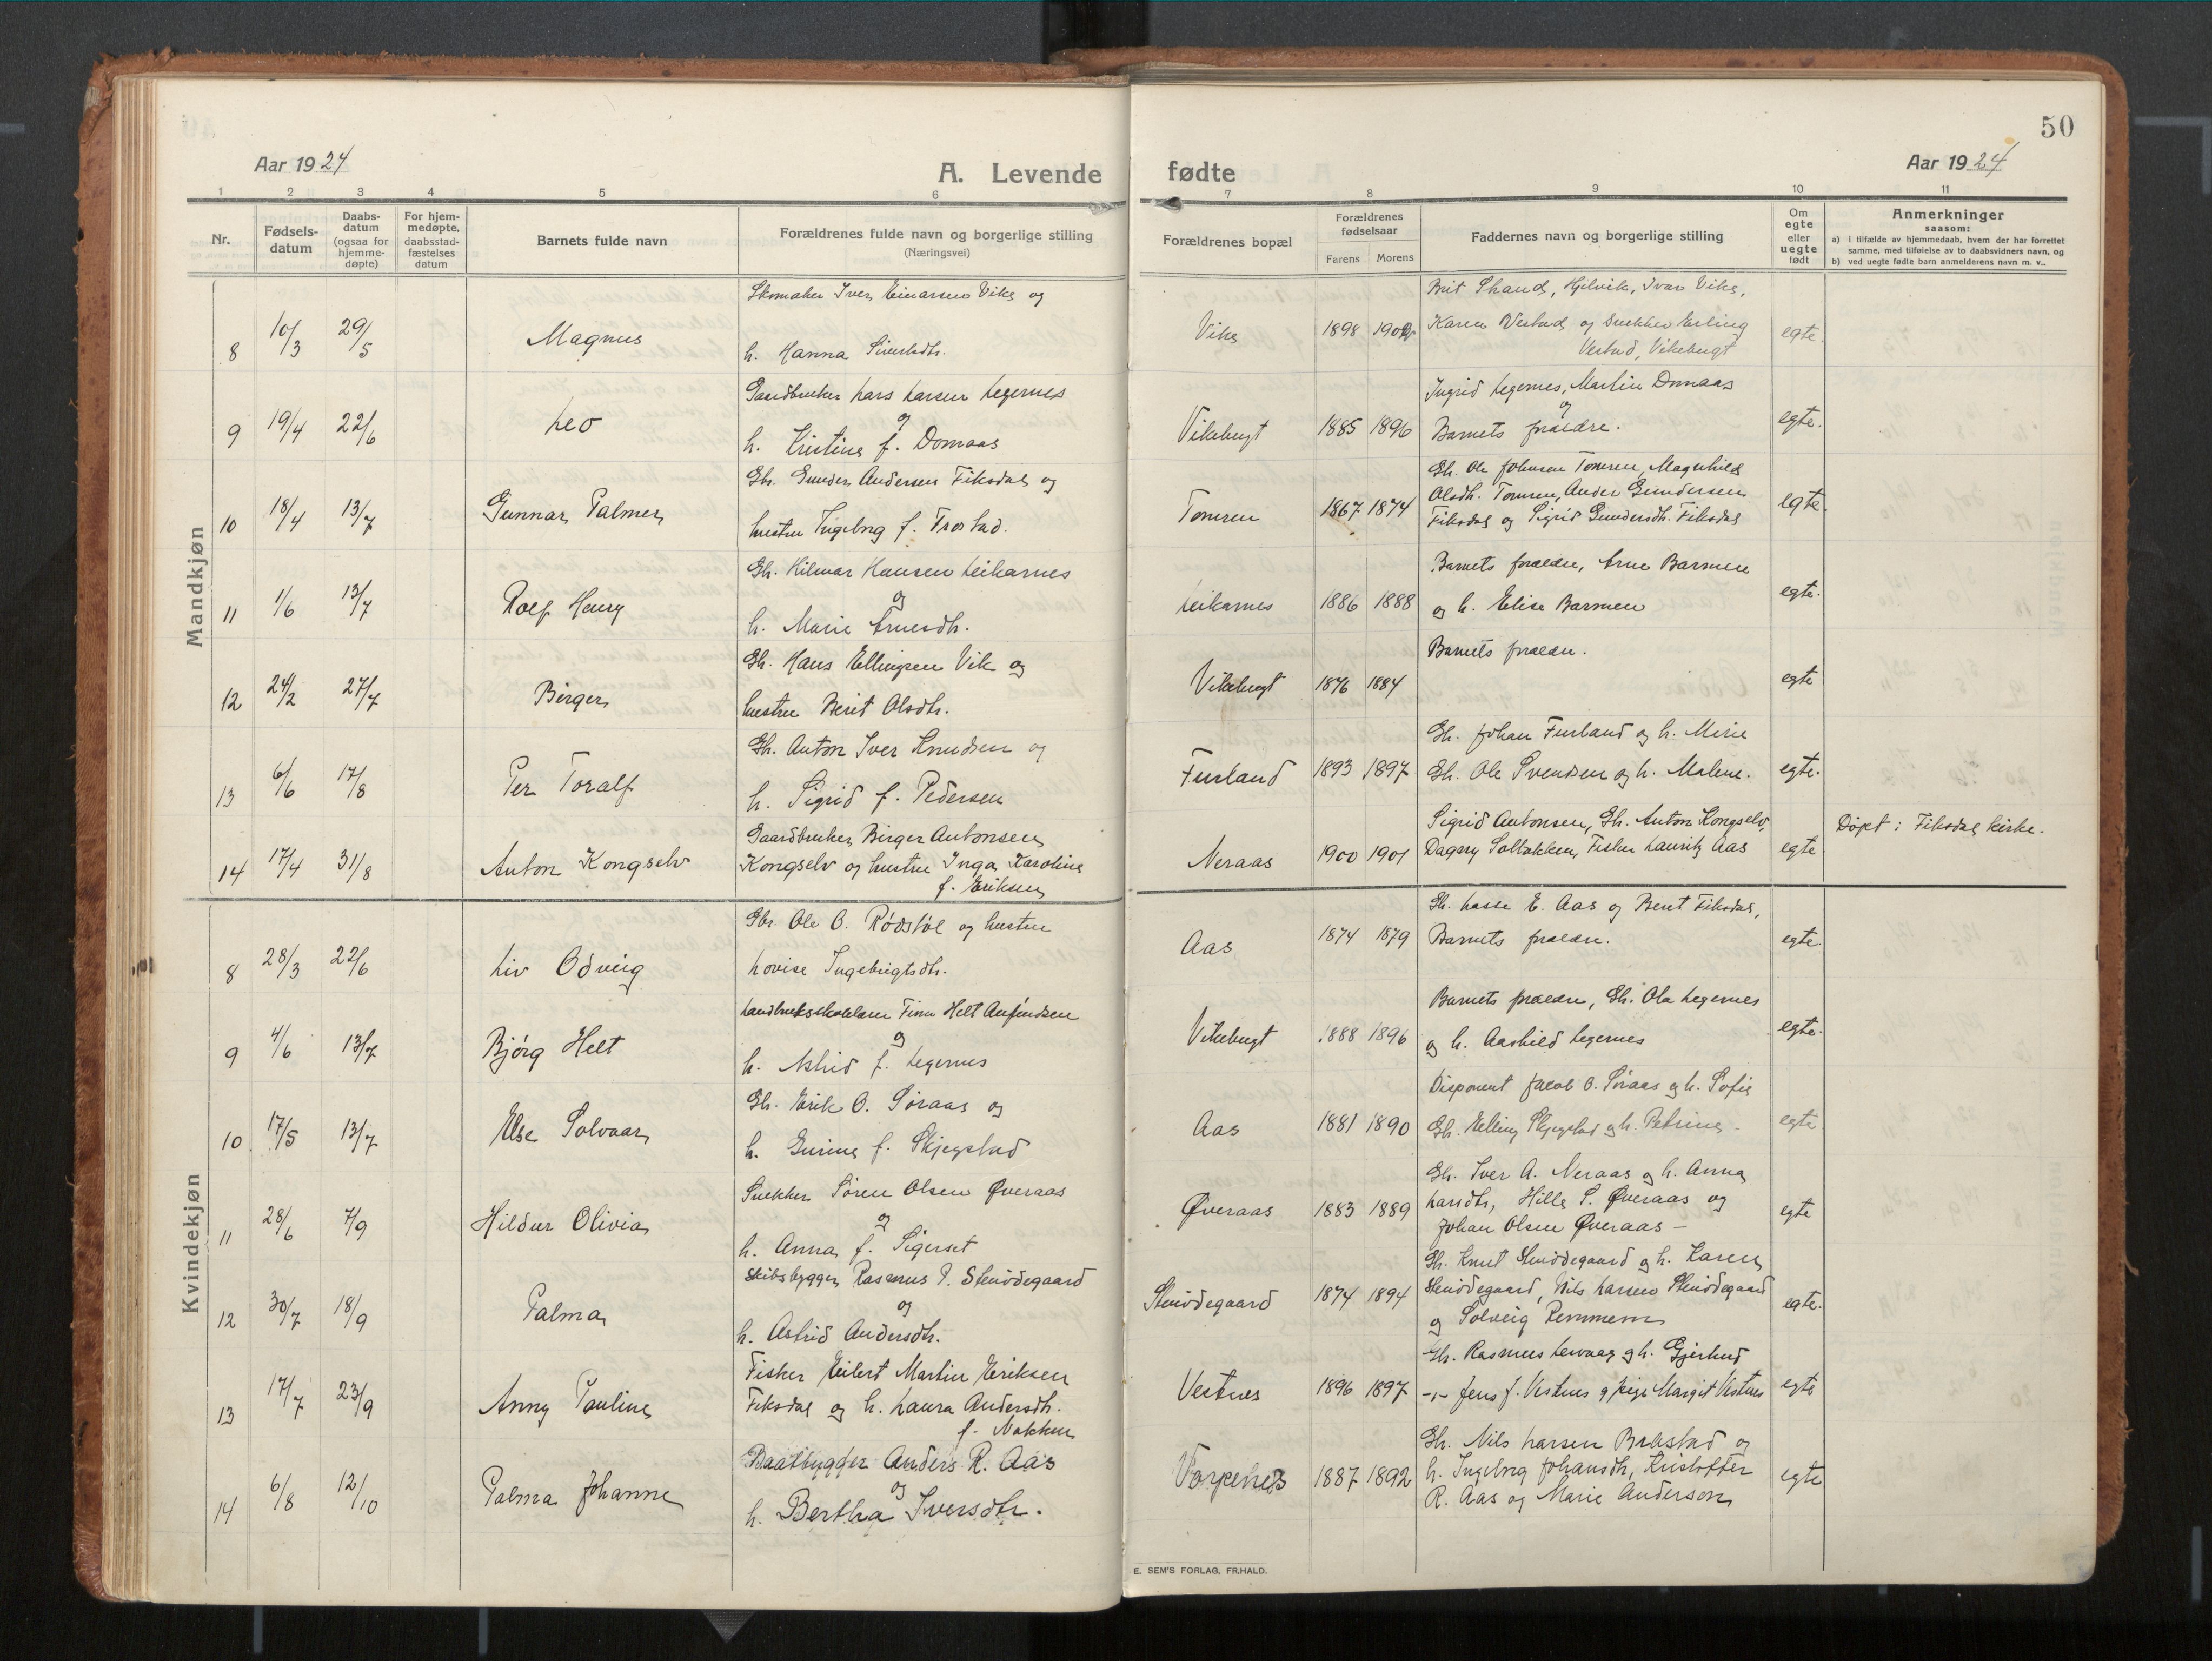 50
Aar 1924
A. Levende
fødte
Aar 1924
1 2 3 4 5 6 7 8 9 10 11
Nr.
Fødsels-
datum
Daabs-
datum
(ogsaa for
hjemme-
døpte)
For hjem-
medøpte,
daabsstad-
fæstelses
datum
Barnets fulde navn
Forældrenes fulde navn og borgerlige stilling
(Næringsvei)
Forældrenes bopæl
Forældrenes
fødselsaar
Farens Morens
Faddernes navn og borgerlige stilling
Om
egte
eller
uegte
født
Anmerkninger
saasom:
a) i tilfælde av hjemmedaab, hvem der har forrettet
samme, med tilføielse av to daabsvidners navn, og
b) ved uegte fødte barn anmelderens navn m. v..
Mandkjøn
8 10/3 29/5 Magnus
Skomaker Iver Einarsen Vike og
h. Hanna Sivertsdtr.
Vike 1898 1902
Brit Skaus, Hjelvik, Ivar Vike,
Karen Vestad og Snekker Erling
Vestad, Vikebugt
egte.
9 19/4 22/6 Leo
Gaardbruker Lars Larsen Legernes
og
h. Kristine f. Domaas
Vikebugt 1885 1896
Ingrid Legernes, Martin Domaas
og
Barnets forældre.
egte.
10 18/4 13/7 Gunnar Palmer
Gbr. Gunder Andersen Fiksdal og
hustru Ingebrg f. Frostad.
Tomren 1867 1874
Gh. Ole Johnsen Tomren, Magnhild
Olsdh. Tomren, Ander Gundersen
Fiksdal og Sigrid Gundersdh. Fiksdal
egte.
11 1/6 13/7 Rolf Henry
Gh. Hilmar Hansen Leikarnes
og
h. Marie Arnesdh.
Leikarnes 1886 1888
Barnets forældre, Arne Barmen
og h. Elise Barmen
egte.
12 24/2 27/7 Birger
Gh. Hans Ellingsen Vik og
hustru Berit Olsdh.
Vikebugt 1876 1884
Barnets forældre.
egte
13 6/6 17/8 Per Toralf
Gh. Anton Iver Knudsen og
h. Sigrid f. Pedersen
Furland 1893 1897
Gh. Johan Furland og h. Mirie
Gh. Ole Svendsen og h. Malene.
egte.
14 17/4 31/8 Anton Kongselv
Gaardbruker Birger Antonsen
Kongselv og hustru Inga Karoline
f. Eriksen
Neraas 1900 1901
Sigrid Antonsen, Gh. Anton Kongselv,
Dagny Solbakken, Fisker Lauritz Aas
egte
Døpt i Fiksdal kirke.
Kvindekjøn
8 28/3 22/6 Liv Odveig
Gbr. Ole O. Rødstøl og hustru
Lovise Ingebrigtsdh.
Aas 1874 1879
Gh. Lasse E. Aas og Beret Fiksdal,
Barnets forældre.
egte.
9 4/6 13/7 Bjørg Helt
Landbruksskolelærer Finn Helt Anfindsen
og
h. Astrid f. Legernes
Vikebugt 1888 1896
Barnets forældre, Gh. Ola Legernes
og h. Aashild Legernes
egte.
10 17/5 13/7 Else Solvaar
Gh. Erik O. Søraas og
h. Gurine f. Skjegstad
Aas 1881 1890
Disponent Jacob O. Søraas og h. Sofie
Gh. Elling Skjegstad og h. Petrine.
egte
11 28/6 7/9 Hildur Olivia
Snekker Søren Olsen Øveraas
og
h. Anna f. Sigerset
Øveraas 1883 1889
Gh. Iver A. Neraas og h. Anna
Larsdtr, Hille S. Øveraas og
Johan Olsen Øveraas –
egte
12 30/7 18/9 Palma
Skibsbygger Rasmus P. Stenødegaard
og
h. Astrid Andersdh.
Stenødegaard 1874 1894
Gh. Knut Stenødegaard og h. Karen
Stenødegaard, Nils Larsen Stenødegaard
og Solveig Remmem
egte.
13 17/7 23/9 Anny Pauline
Fisker Eilert Martin Eriksen
Fiksdal og h. Laura Andersdh.
f. Nakken
Vestnes 1896 1897
Gh. Rasmus Lervaag og h. Gjertrud
-"- Jens J. Vestnes og pige Margit Vestnes
egte
14 6/8 12/10 Palma Johanne
Baatbygger Anders R. Aas
og
h. Bertha Iversdtr.
Varpenes 1887 1892
Gh. Nils Larsen Brastad og
h. Ingebrg Johansdh, Kristoffer
R. Aas og Marie Anderson
egte
E. SEM'S FORLAG, FR.HALD.